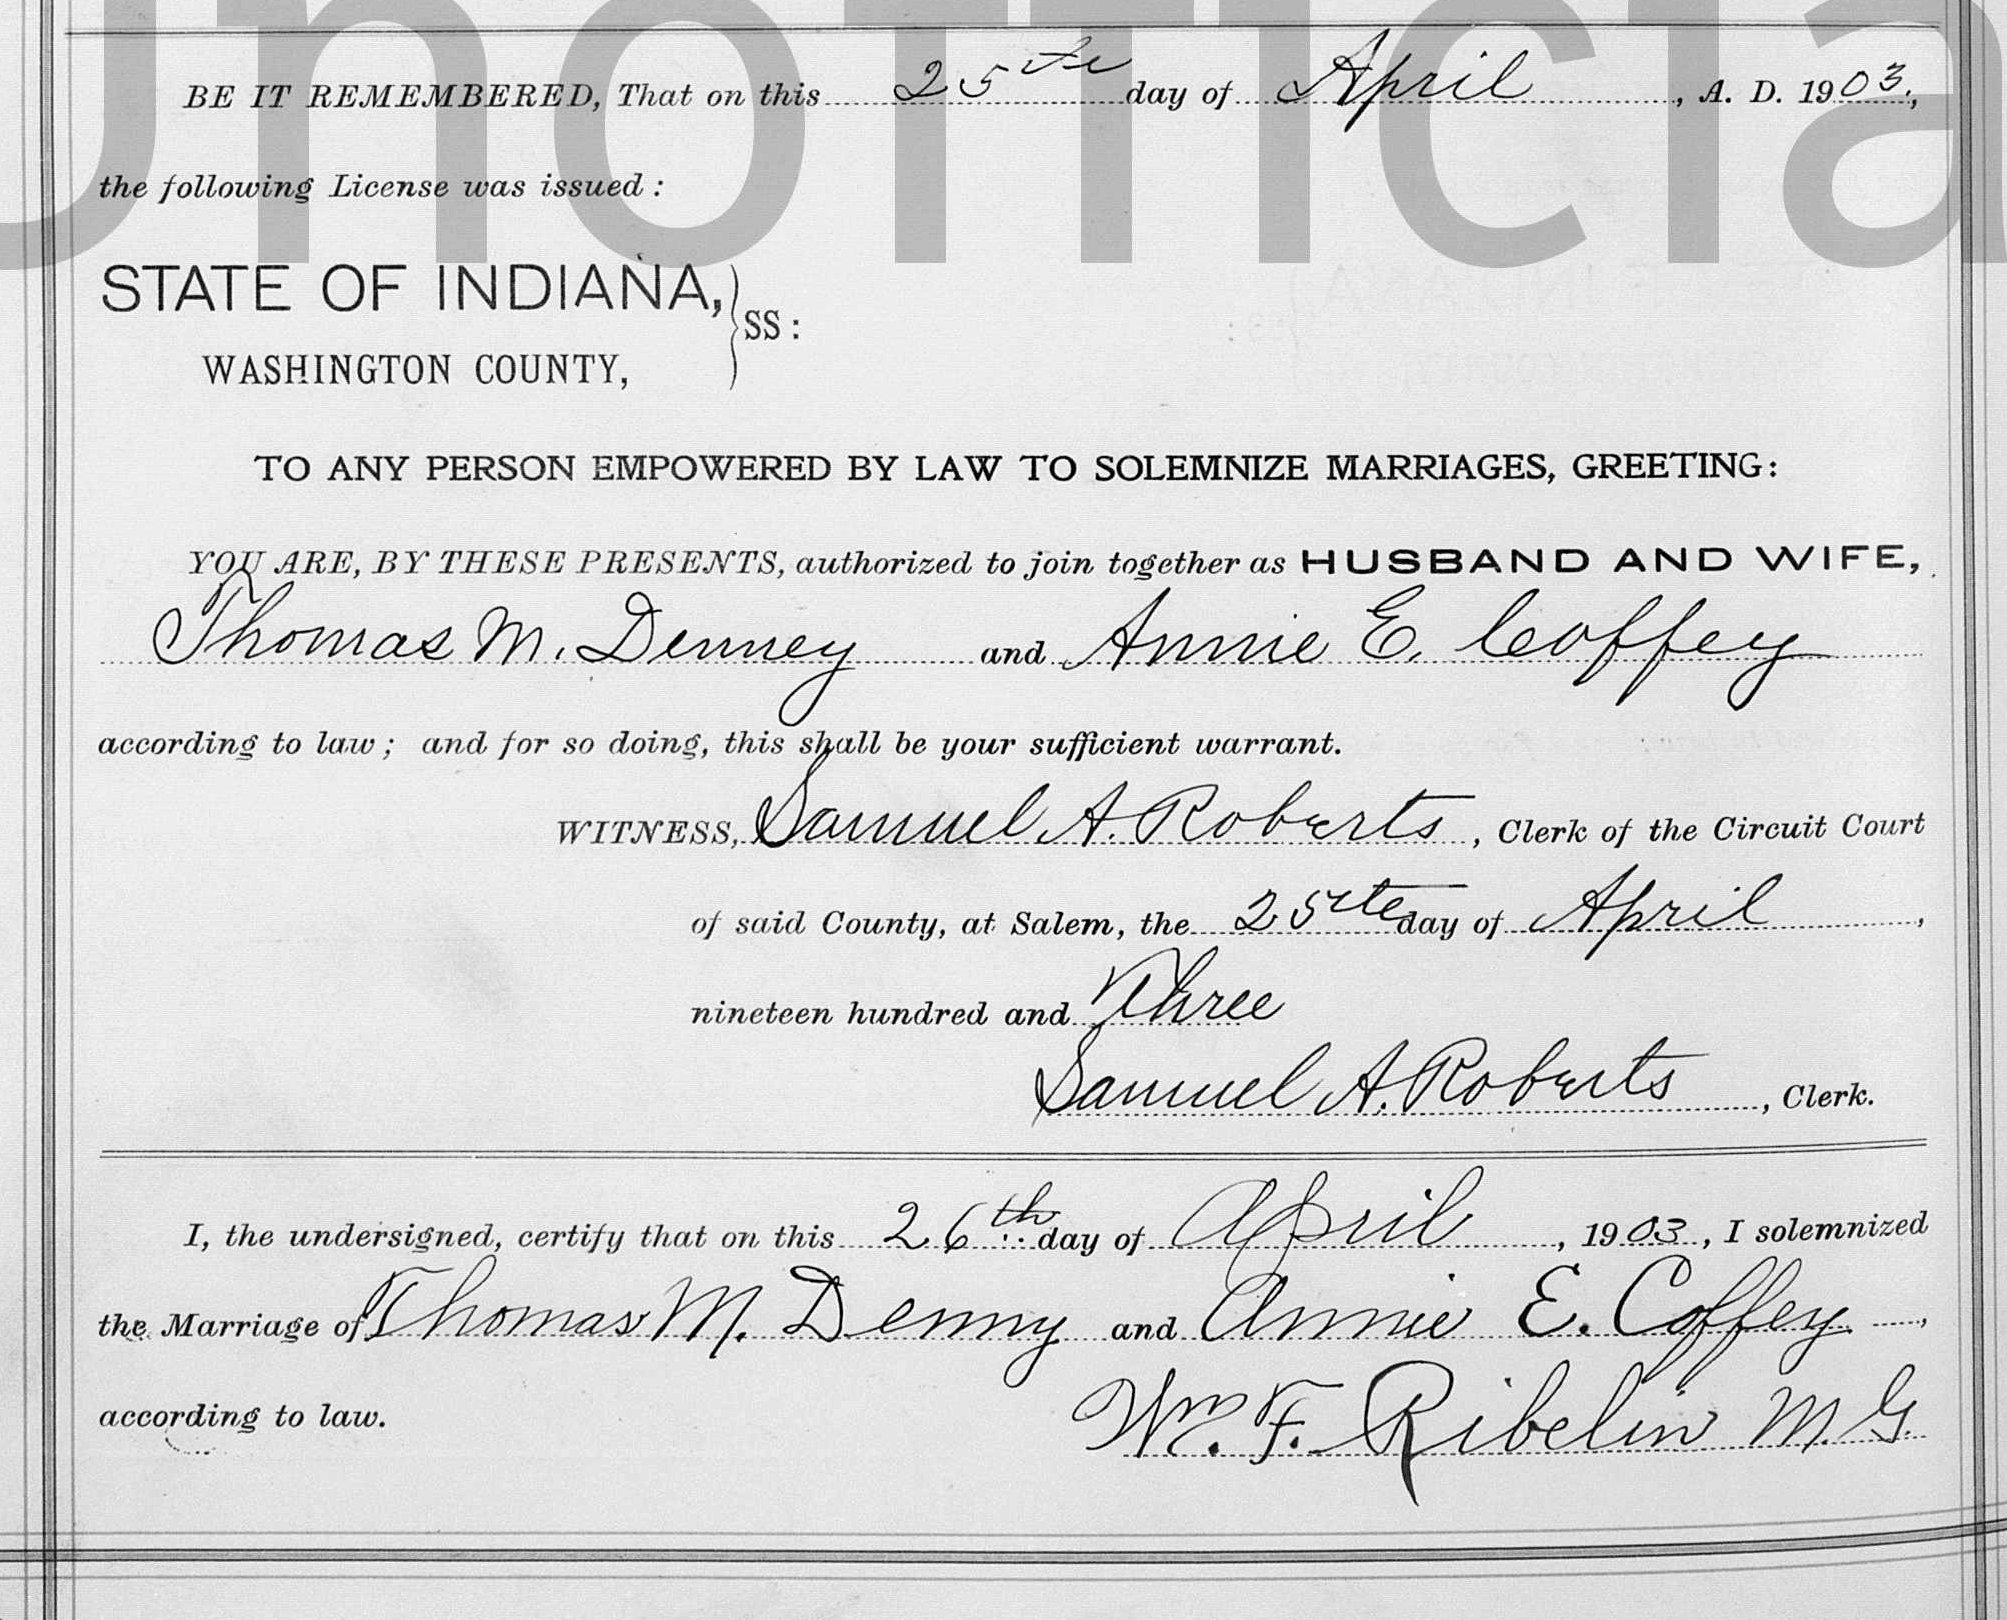 Unofficia
BE IT REMEMBERED, That on this 25th day of April, A. D. 1903,
the following License was issued:
STATE OF INDIANA,
SS:
WASHINGTON COUNTY,
TO ANY PERSON EMPOWERED BY LAW TO SOLEMNIZE MARRIAGES, GREETING:
YOU ARE, BY THESE PRESENTS, authorized to join together as HUSBAND AND WIFE,
Thomas M. Denney and Annie E. Coffey
according to law; and for so doing, this shall be your sufficient warrant.
WITNESS, Samuel A. Roberts, Clerk of the Circuit Court
of said County, at Salem, the 25th day of April,
nineteen hundred and Three
Samuel A. Roberts, Clerk.
I, the undersigned, certify that on this 26th day of April, 1903, I solemnized
the Marriage of Thomas M. Denny and Annie E. Coffey,
according to law.
Wm. F. Ribelin M.G.